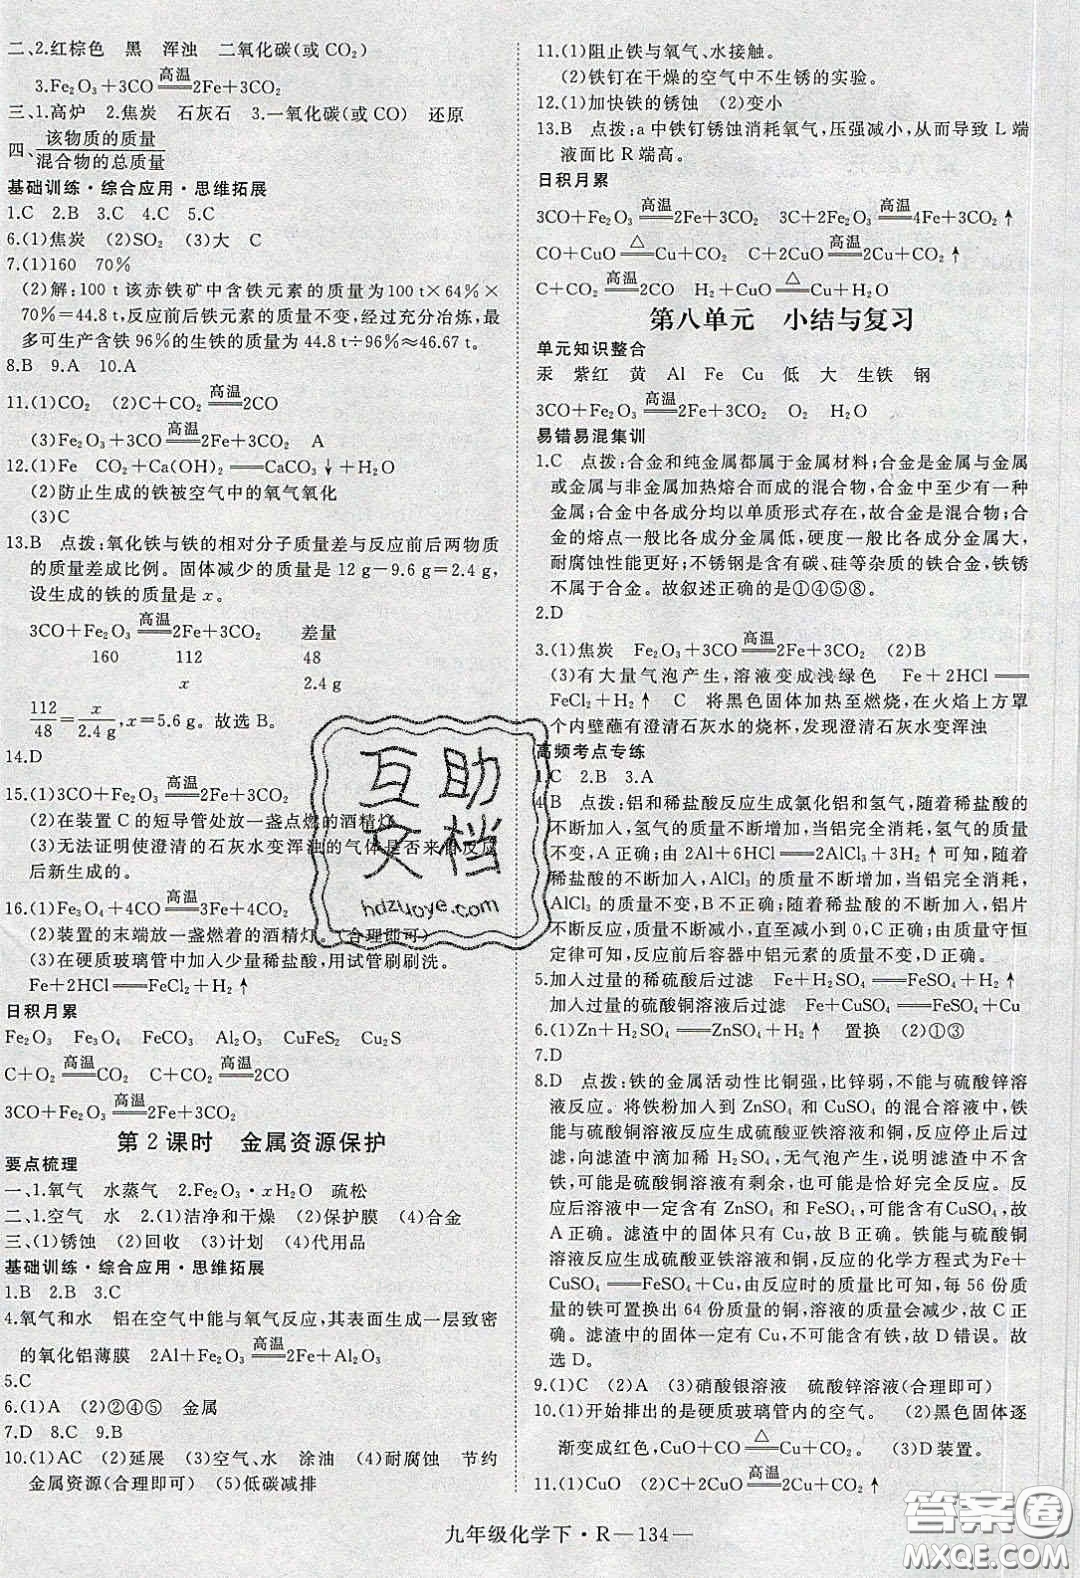 二、2.红棕色 黑 浑浊 二氧化碳(或 CO₂)
3.Fe₂O₃+3CO══高温══2Fe+3CO₂
三、1.高炉 2.焦炭 石灰石 3.一氧化碳(或 CO) 还原
四、该物质的质量/混合物的总质量
基础训练·综合应用·思维拓展
1.C 2.B 3.C 4.C 5.C
6.(1)焦炭 (2)SO₂ (3)大 C
7.(1)160 70%
(2)解:100 t 该赤铁矿中含铁元素的质量为 100 t×64%×
70%=44.8 t,反应前后铁元素的质量不变,经过充分冶炼,最
多可生产含铁 96%的生铁的质量为 44.8 t÷96%≈46.67 t。
8.B 9.A 10.A
11.(1)CO₂ (2)C+CO₂══高温══2CO
(3)Fe₂O₃+3CO══高温══2Fe+3CO₂ A
12.(1)Fe CO₂+Ca(OH)₂══CaCO₃↓+H₂O
(2)防止生成的铁被空气中的氧气氧化
(3)C
13.B 点拨:氧化铁与铁的相对分子质量差与反应前后两物质
的质量差成比例。固体减少的质量是 12 g-9.6 g=2.4 g,
设生成的铁的质量是 x。
3CO+Fe₂O₃══高温══2Fe+3CO₂ 差量
160 112 48
x 2.4 g
112/48=x/2.4 g,x=5.6 g。故选 B。
14.D
15.(1)3CO+Fe₂O₃══高温══2Fe+3CO₂
(2)在装置 C 的短导管处放一盏点燃的酒精灯
(3)无法证明使澄清的石灰水变浑浊的气体是否来自反应
后新生成的。
16.(1)Fe₃O₄+4CO══高温══3Fe+4CO₂
(2)装置的末端放一盏燃着的酒精灯。(合理即可)
(3)在硬质玻璃管中加入少量稀盐酸,用试管刷刷洗。
Fe+2HCl══FeCl₂+H₂↑
日积月累
Fe₂O₃ Fe₃O₄ FeCO₃ Al₂O₃ CuFeS₂ Cu₂S
C+O₂══高温══CO₂ C+CO₂══高温══2CO
3CO+Fe₂O₃══高温══2Fe+3CO₂
第 2 课时 金属资源保护
要点梳理
一、1.氧气 水蒸气 2.Fe₂O₃·xH₂O 疏松
二、1.空气 水 2.(1)洁净和干燥 (2)保护膜 (4)合金
三、(1)锈蚀 (2)回收 (3)计划 (4)代用品
基础训练·综合应用·思维拓展
1.B 2.B 3.C
4.氧气和水 铝在空气中能与氧气反应,其表面生成一层致密
的氧化铝薄膜 2Al+Fe₂O₃══高温══2Fe+Al₂O₃
5.C
6.(1)A (2)②④⑤ 金属
7.D 8.C 9.B
10.(1)AC (2)延展 (3)空气、水 涂油 (4)耐腐蚀 节约
金属资源(合理即可) (5)低碳减排
11.(1)阻止铁与氧气、水接触。
(2)铁钉在干燥的空气中不生锈的实验。
12.(1)加快铁的锈蚀 (2)变小
13.B 点拨:a 中铁钉锈蚀消耗氧气,压强减小,从而导致 L 端
液面比 R 端高。
日积月累
3CO+Fe₂O₃══高温══2Fe+3CO₂ 3C+2Fe₂O₃══高温══4Fe+3CO₂↑
CO+CuO══△══Cu+CO₂ C+2CuO══高温══2Cu+CO₂↑
C+CO₂══高温══2CO H₂+CuO══△══Cu+H₂O
第八单元 小结与复习
单元知识整合
汞 紫红 黄 Al Fe Cu 低 大 生铁 钢
3CO+Fe₂O₃══高温══2Fe+3CO₂ O₂ H₂O
易错易混集训
1.C 点拨:合金和纯金属都属于金属材料;合金是金属与金属
或金属与非金属加热熔合而成的混合物,合金中至少有一种
金属;合金中各成分均以单质形式存在,故合金是混合物;合
金的熔点一般比各成分金属低,硬度一般比各成分金属大,
耐腐蚀性能更好;不锈钢是含有碳、硅等杂质的铁合金,铁锈
不属于合金。故叙述正确的是①④⑤⑧。
2.D
3.(1)焦炭 Fe₂O₃+3CO══高温══2Fe+3CO₂ (2)B
(3)有大量气泡产生,溶液变成浅绿色 Fe+2HCl══
FeCl₂+H₂↑ C 将黑色固体加热至燃烧,在火焰上方罩
个内壁蘸有澄清石灰水的烧杯,发现澄清石灰水变浑浊
高频考点专练
1.C 2.B 3.A
4.B 点拨:铝和稀盐酸反应生成氯化铝和氢气,随着稀盐酸的
不断加入,氢气的质量不断增加,当铝完全消耗,氢气的质量
不变,A 正确;由 2Al+6HCl══2AlCl₃+3H₂↑可知,随着
稀盐酸的不断加入,AlCl₃ 的质量不断增加,当铝完全消耗,
AlCl₃ 的质量不变,B 不正确;随着稀盐酸的不断加入,铝片
不断反应,质量不断减小,直至减小到 0,C 正确;由质量守恒
定律可知,反应前后容器中铝元素的质量不变,D 正确。
5.加入过量的稀硫酸后过滤 Fe+H₂SO₄══FeSO₄+H₂↑
加入过量的硫酸铜溶液后过滤 Fe+CuSO₄══FeSO₄+Cu
6.(1)Zn+H₂SO₄══ZnSO₄+H₂↑ 置换 (2)①③
7.D
8.D 点拨:铁的金属活动性比铜强,比锌弱,不能与硫酸锌溶
液反应。将铁粉加入到 ZnSO₄ 和 CuSO₄ 的混合溶液中,铁
能与硫酸铜溶液反应生成硫酸亚铁溶液和铜,反应停止后过
滤,向滤渣中滴加少量稀 H₂SO₄,无气泡产生,说明滤渣中无
铁,可能是硫酸铜有剩余,也可能是恰好完全反应,因此反应
后溶液中一定含有 ZnSO₄ 和 FeSO₄,可能含有 CuSO₄,故
A 正确。滤渣中的固体只有 Cu,故 B 正确。铁能与硫酸铜
溶液反应生成硫酸亚铁溶液和铜,反应的化学方程式为Fe+
CuSO₄══FeSO₄+Cu,由反应时的质量比可知,每 56 份质
量的铁可置换出 64 份质量的铜,溶液的质量会减少,故 C 正
确。滤渣中的固体一定有 Cu,不可能含有铁,故 D 错误。故
选 D。
9.(1)C (2)A (3)硝酸银溶液 硫酸锌溶液(合理即可)
10.(1)开始排出的是硬质玻璃管内的空气。 (2)黑色固体逐
渐变成红色,CuO+CO══△══Cu+CO₂ (3)D 装置。
11.(1)CuO (2)C+2CuO══高温══2Cu+CO₂↑
九年级化学下·R—134—
互助
文档
hdzuoye.com
答案圈
MXQE.COM